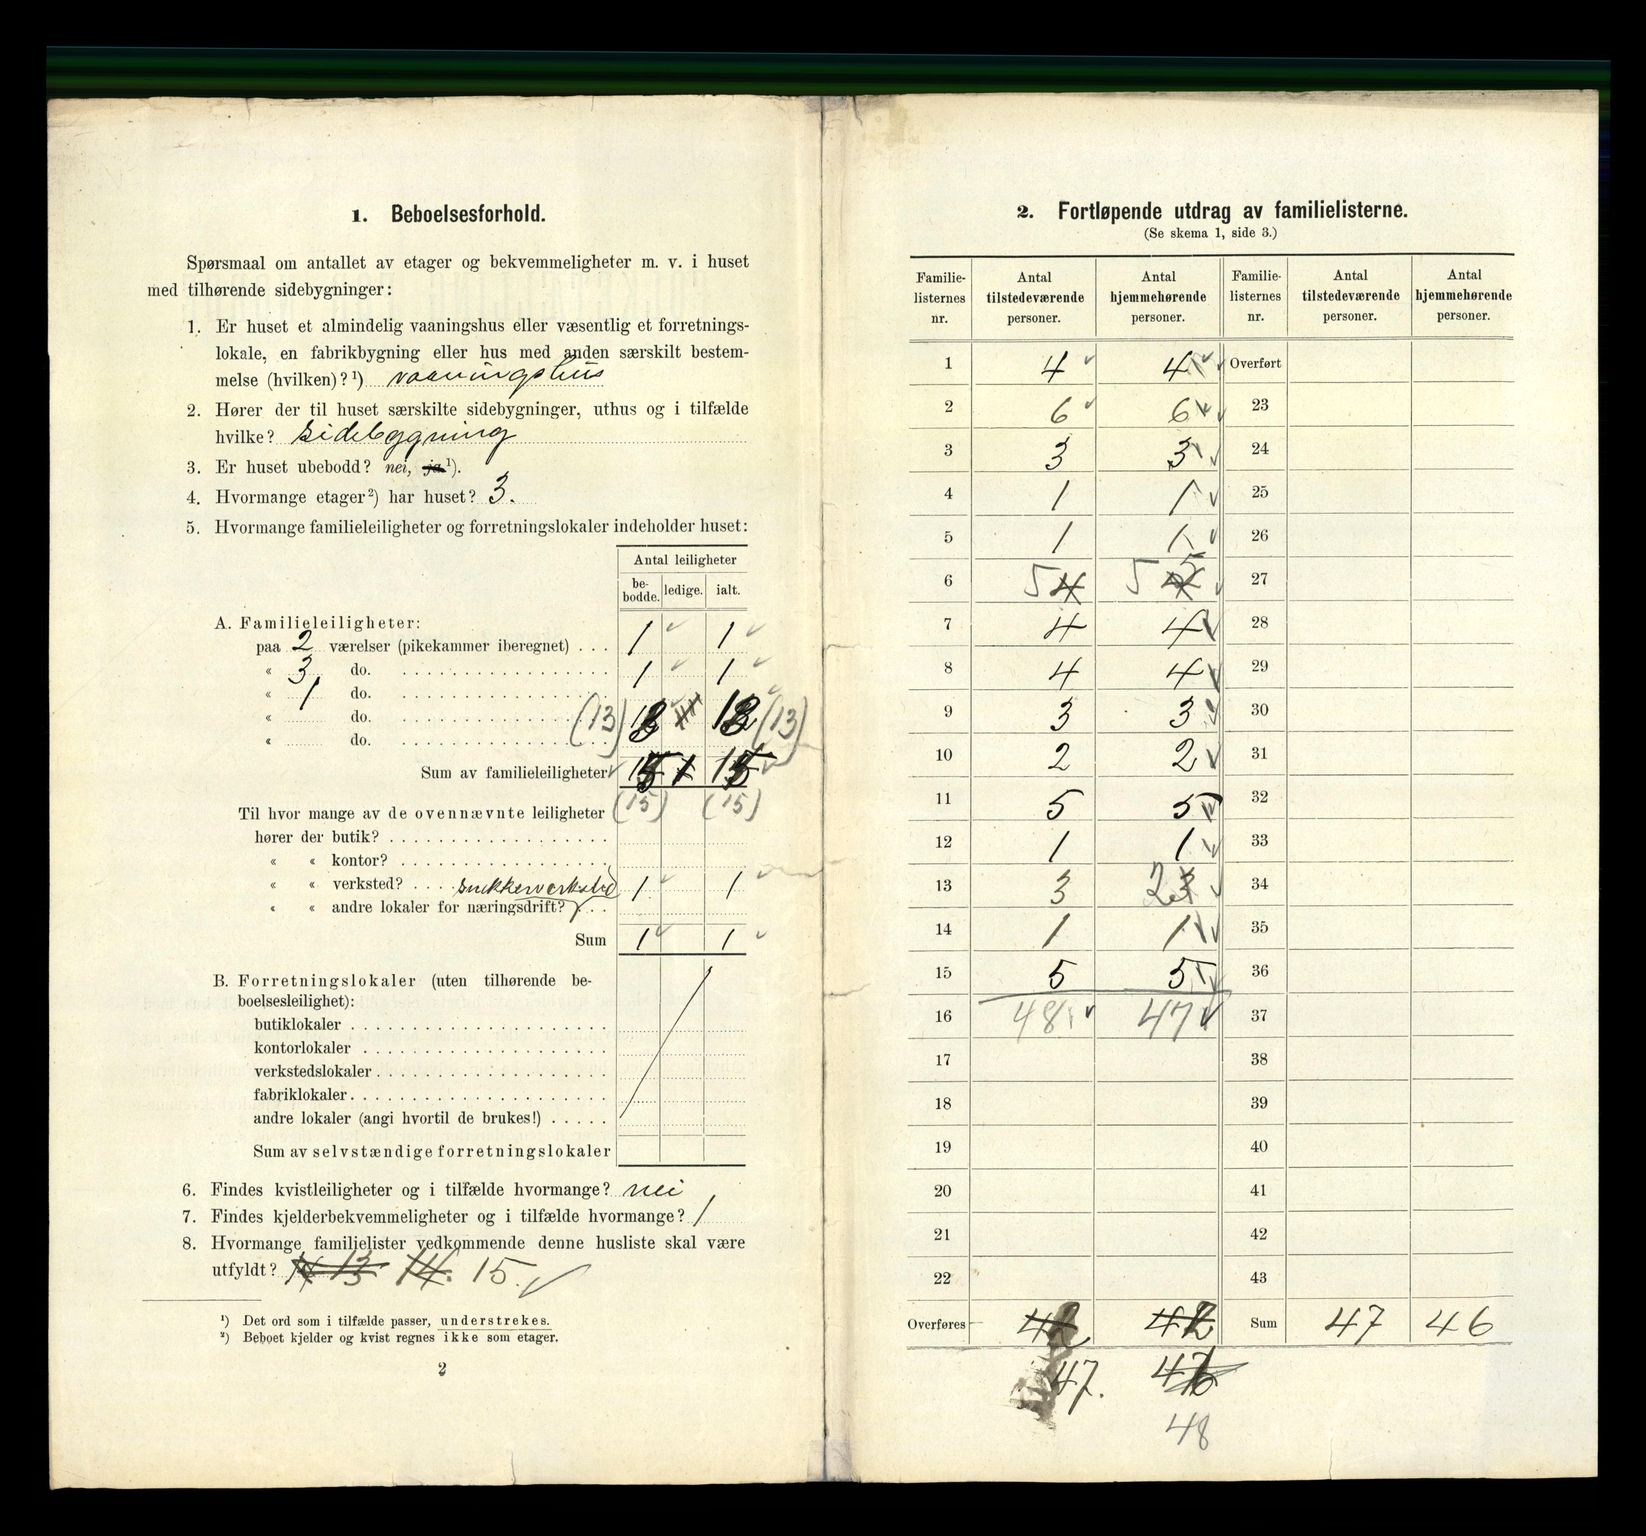 1. Beboelsesforhold.
Spørsmaal om antallet av etager og bekvemmeligheter m. v. i huset
med tilhørende sidebygninger:
1. Er huset et almindelig vaaningshus eller væsentlig et forretnings-
lokale, en fabrikbygning eller hus med anden særskilt bestem-
melse (hvilken)?¹) vaaningshus
2. Hører der til huset særskilte sidebygninger, uthus og i tilfælde
hvilke? Sidebygning
3. Er huset ubebodd? nei, ja¹).
4. Hvormange etager²) har huset? 3.
5. Hvormange familieleiligheter og forretningslokaler indeholder huset:
Antal leiligheter
be-bodde. ledige. ialt.
A. Familieleiligheter:
paa 2 værelser (pikekammer iberegnet) . . . 1 1
« 3 do. 1 1
« 1 do.
« do. (13) 13 13 (13)
« do.
Sum av familieleiligheter 15 1 15
(15) (15)
Til hvor mange av de ovennævnte leiligheter
hører der butik?
« « kontor?
« « verksted? . . . . snikkerverksted 1 1
« « andre lokaler for næringsdrift?
Sum 1 1
B. Forretningslokaler (uten tilhørende be-
boelsesleilighet):
butiklokaler
kontorlokaler
verkstedslokaler
fabriklokaler
andre lokaler (angi hvortil de brukes!)
Sum av selvstændige forretningslokaler
6. Findes kvistleiligheter og i tilfælde hvormange? nei
7. Findes kjelderbekvemmeligheter og i tilfælde hvormange? 1
8. Hvormange familielister vedkommende denne husliste skal være
utfyldt? 13 14. 15.
¹) Det ord som i tilfælde passer, understrekes.
²) Beboet kjelder og kvist regnes ikke som etager.
2
2. Fortløpende utdrag av familielisterne.
(Se skema 1, side 3.)
Familie-listernes nr. Antal tilstedeværende personer. Antal hjemmehørende personer. Familie-listernes nr. Antal tilstedeværende personer. Antal hjemmehørende personer.
1 4 4 Overført
2 6 6 23
3 3 3 24
4 1 1 25
5 1 1 26
6 5 4 5 4 5 27
7 4 4 28
8 4 4 29
9 3 3 30
10 2 2 31
11 5 5 32
12 1 1 33
13 3 2 3 34
14 1 1 35
15 5 5 36
16 48 47 37
17 38
18 39
19 40
20 41
21 42
22 43
Overføres 42 42 Sum 47 46
47. 47
48